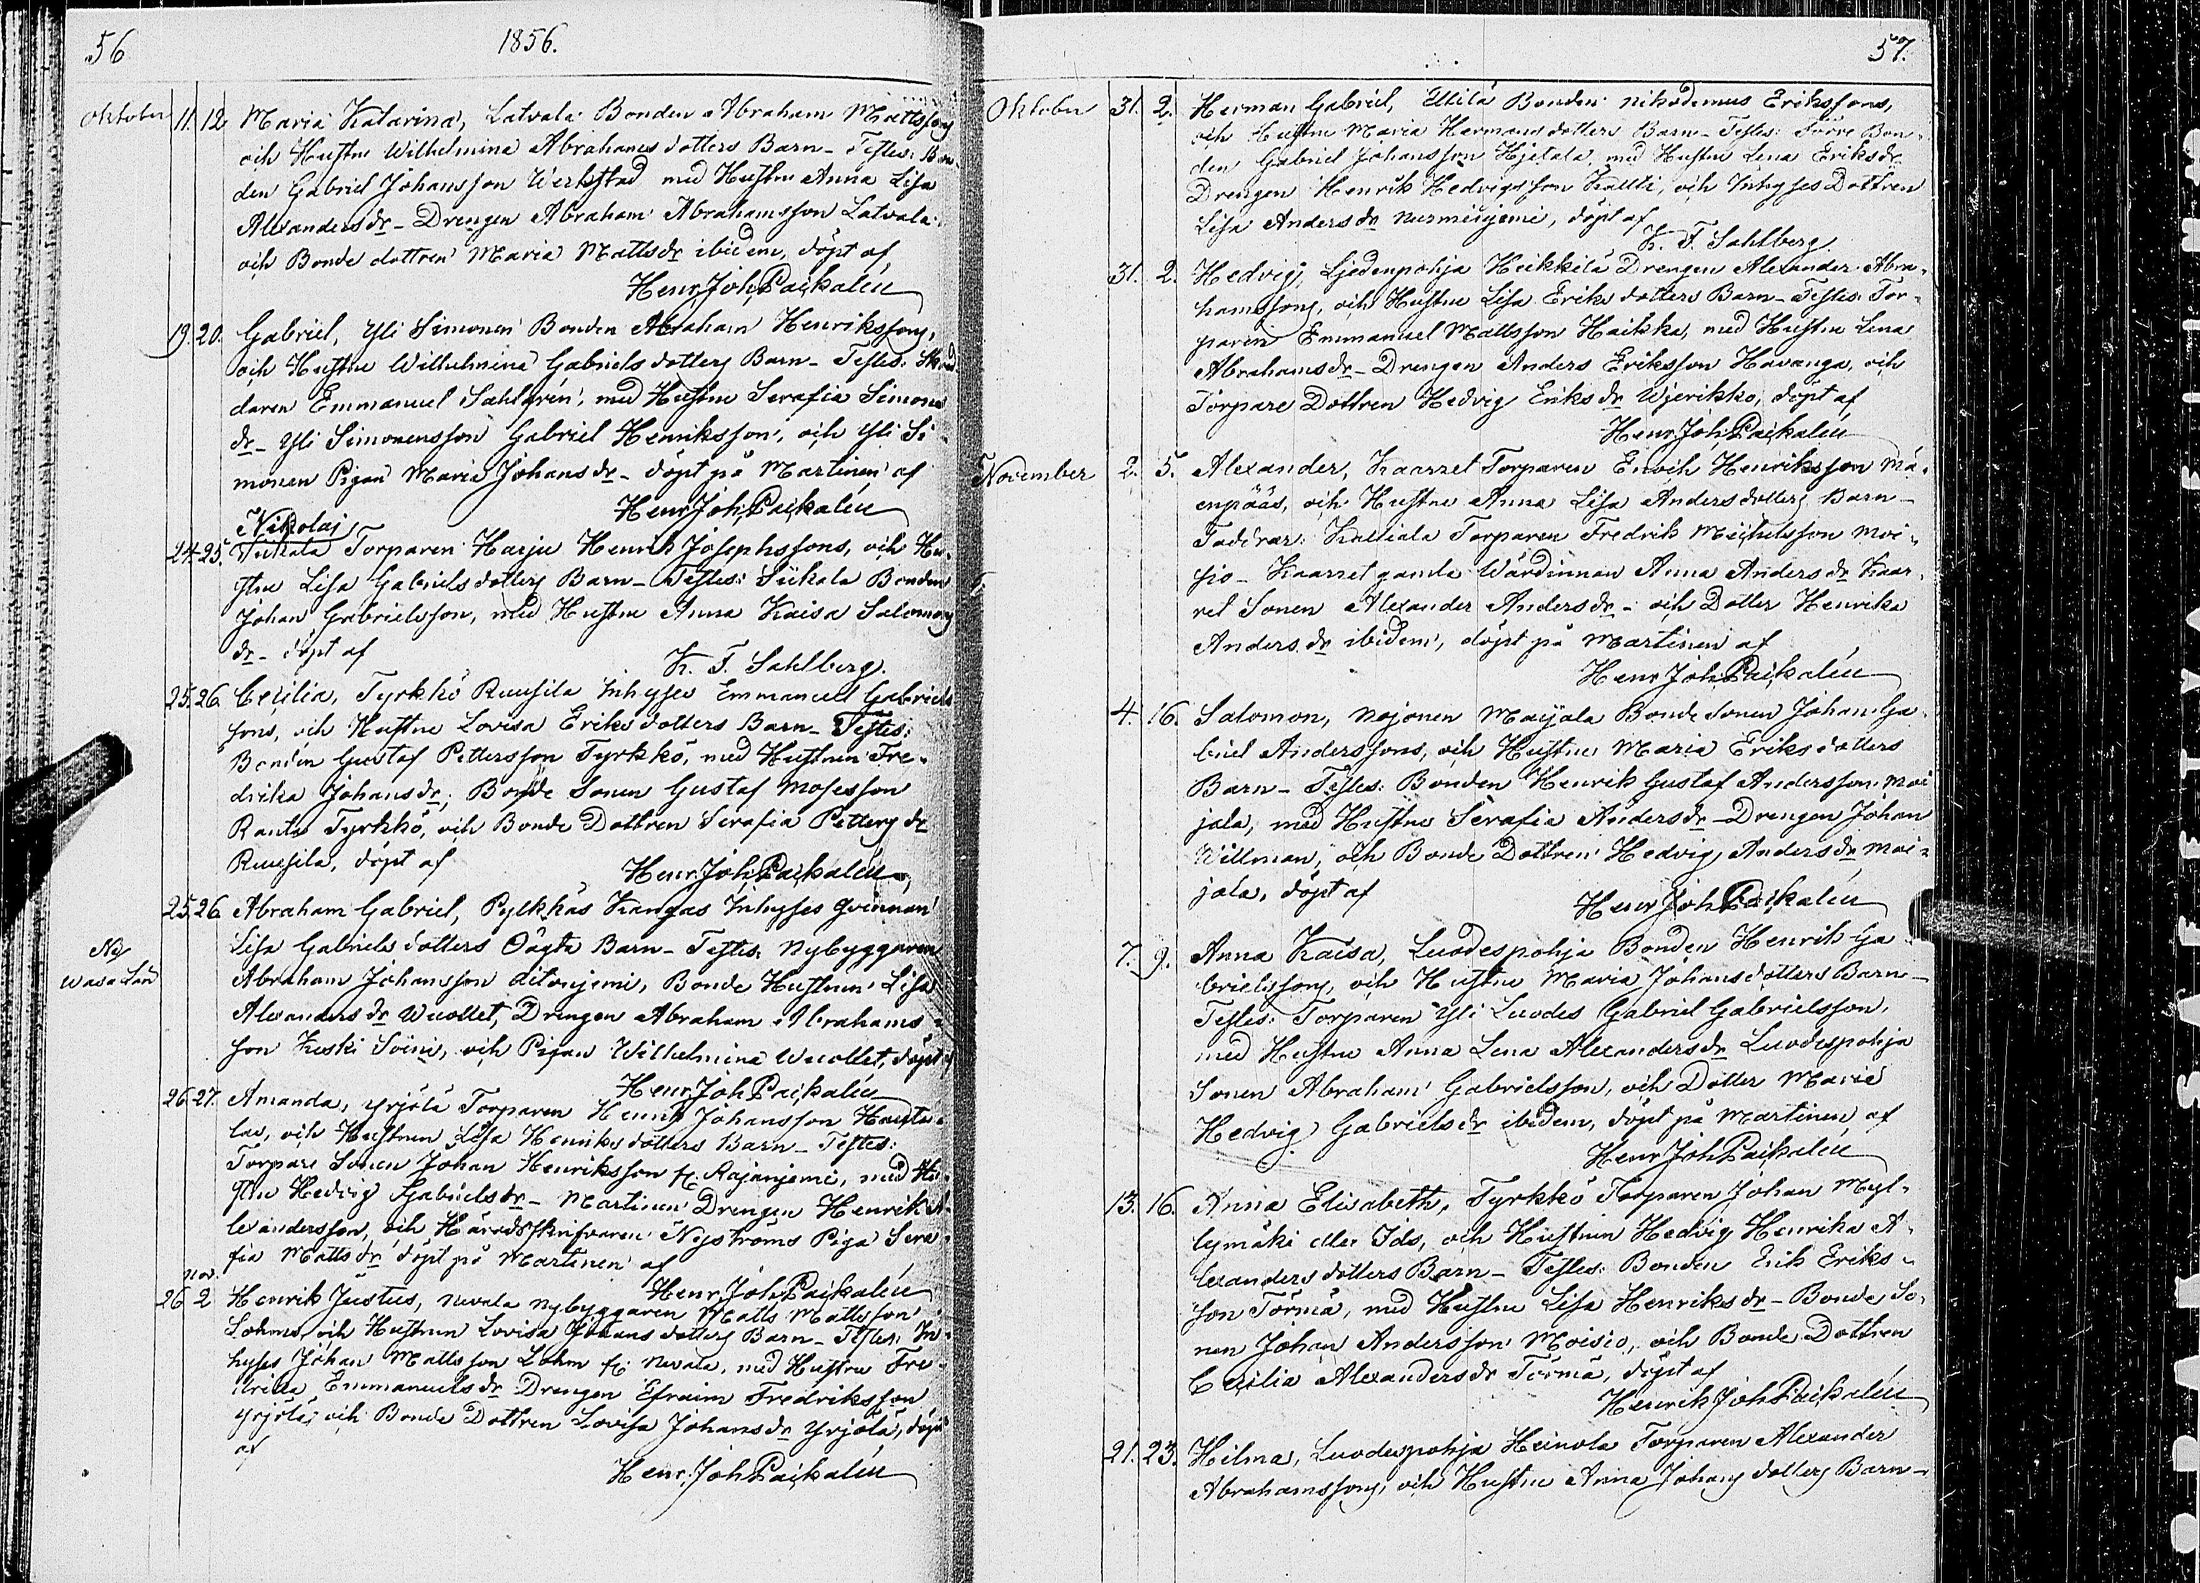 56
1856.
Oktober 11. 12. Maria Katarina, Latvala Bonden Abraham Mattssons
och Hustru Wilhelmina Abrahamsdotters Barn - Testes: Bon-
den Gabriel Johansson Werkstad med Hustru Anna Lisa
Alexandersdr - Drengen Abraham Abrahamsson Latvala
och Bonde dottren Maria Mattsdr ibidem, döpt af
Henr. Joh. Paikalén
19. 20. Gabriel, Yli Simonen Bonden Abraham Henrikssons,
och Hustru Wilhelmina Gabrielsdotters Barn - Testes: Skräd-
daren Emmanuel Sahlgrén, med Hustru Serafia Simons
dr - Yli Simonensson Gabriel Henriksson, och Yli Si-
monen Pigan Maria Johansdr - döpt på Martinen af
Henr. Joh. Paikalén
Nikolai,
24. 25. Torparen Harju Henrik Josephssons, och Hu-
stru Lisa Gabrielsdotters Barn - Testes: Siikala Bonden
Johan Gabrielsson, med Hustru Anna Kaisa Salomons
dr - döpt af
K. F. Sahlberg.
25. 26. Cecilia, Tyrkkö Ruusila Inhyses Emmanuel Gabriels
sons, och Hustru Lovisa Eriksdotters Barn - Testes:
Bonden Gustaf Pettersson Tyrkkö, med Hustrun Fre-
drika Johansdr; Bonde Sonen Gustaf Mosesson
Ranta Tyrkkö, och Bonde Dottren Serafia Petters dr
Ruusila, döpt af
Henr. Joh. Paikalén
25. 26. Abraham Gabriel, Pylkkäs Kangas Inhyses Qvinnan
Lisa Gabrielsdotters Oägta Barn - Testes: Nybyggaren
Ny
Wasa Län
Abraham Johansson Aitonjemi, Bonde Hustrun Lisa
Alexandersdr Wuollet, Drengen Abraham Abrahams-
son Koski Soini, och Pigan Wilhelmina Wuollet, döpt af
Henr. Joh. Paikalén
26. 27. Amanda, Yrjölä Torparen Henrik Johansson
las, och Hustrun Lisa Henriksdotters Barn - Testes:
Torpare Sonen Johan Henriksson fr. Rajanjemi, med Hu-
stru Hedvig Gabrielsdr - Martinen Drengen Henrik A-
lexandersson, och Häradsskrifvaren Nyströms Piga Sera-
fia Mattsdr döpt på Martinen af
Henr. Joh. Paikalén
nov.
26. 2. Henrik Justus, Nevala Nybyggaren Matts Mattsson
Lohms, och Hustrun Lovisa Johansdotters Barn - Testes: In-
hyses Johan Mattsson Lohm fr. Nevala, med Hustru Fre-
drika Emmanuelsdr Drengen Efraim Fredriksson
Yrjölä, och Bonde Dottren Lovisa Johansdr Yrjölä, döpt
af
Henr. Joh. Paikalén
57.
Oktober 31. 2. Herman Gabriel, Ylilä Bonden Nikodemus Erikssons,
och Hustru Maria Hermansdotters Barn - Testes: Förre Bon-
den Gabriel Johansson Hjetala, med Hustru Lena Eriksdr
Drengen Henrik Hedvigsson Kallti, och Inhyses Dottren
Lisa Andersdr Nurmisjemi, döpt af
K. F. Sahlberg.
31. 2. Hedvig, Ljedenpohja Heikkilä Drengen Alexander Abra-
hamssons, och Hustru Lisa Eriksdotters Barn - Testes: Tor-
paren Emmanuel Mattsson Haikka, med Hustru Lena
Abrahamsdr - Drengen Anders Eriksson Havanga, och
Torpare Dottren Hedvig Eriksdr Wjerikko, döpt af
Henr. Joh. Paikalén
November 2. 5. Alexander, Kaarret Torparen Enoch Henriksson Mä-
enpääs, och Hustru Anna Lisa Andersdotters Barn -
Faddrar: Kalliala Torparen Fredrik Michelsson Moi-
sio - Kaarret gamla Wärdinnan Anna Andersdr Kaar-
ret Sonen Alexander Andersdr - och Dotter Henrika
Anders dr ibidem, döpt på Martinen af
Henr. Joh. Paikalén
4. 16. Salomon, Nojonen Maijala Bonde Sonen Johan Ga-
briel Anderssons, och Hustru Maria Eriksdotters
Barn - Testes: Bonden Henrik Gustaf Andersson Mai-
jala, med Hustru Serafia Andersdr - Drengen Johan
Willman, och Bonde Dottren Hedvig Andersdr Mai-
jala, döpt af
Henr. Joh. Paikalén
7. 9. Anna Kaisa, Luodespohja Bonden Henrik Ga-
brielssons, och Hustru Maria Johansdotters Barn -
Testes: Torparen Yli Luodes Gabriel Gabrielsson,
med Hustru Anna Lena Alexandersdr Luodespohja
Sonen Abraham Gabrielsson, och Dotter Maria
Hedvig Gabrielsdr ibidem, döpt på Martinen af
Henr. Joh. Paikalén
13. 16. Anna Elisabeth, Tyrkkö Torparen Johan Myl-
lymäki eller Ids, och Hustrun Hedvig Henrika A-
lexandersdotters Barn - Testes: Bonden Erik Eriks-
son Törmä, med Hustru Lisa Henriksdr - Bonde So-
nen Johan Andersson Moisio, och Bonde Dottren
Cecilia Alexandersdr Törmä, döpt af
Henrik Joh. Paikalén
21. 23. Hilma, Luodespohja Heinola Torparen Alexander
Abrahamssons, och Hustru Anna Johans dotters Barn -